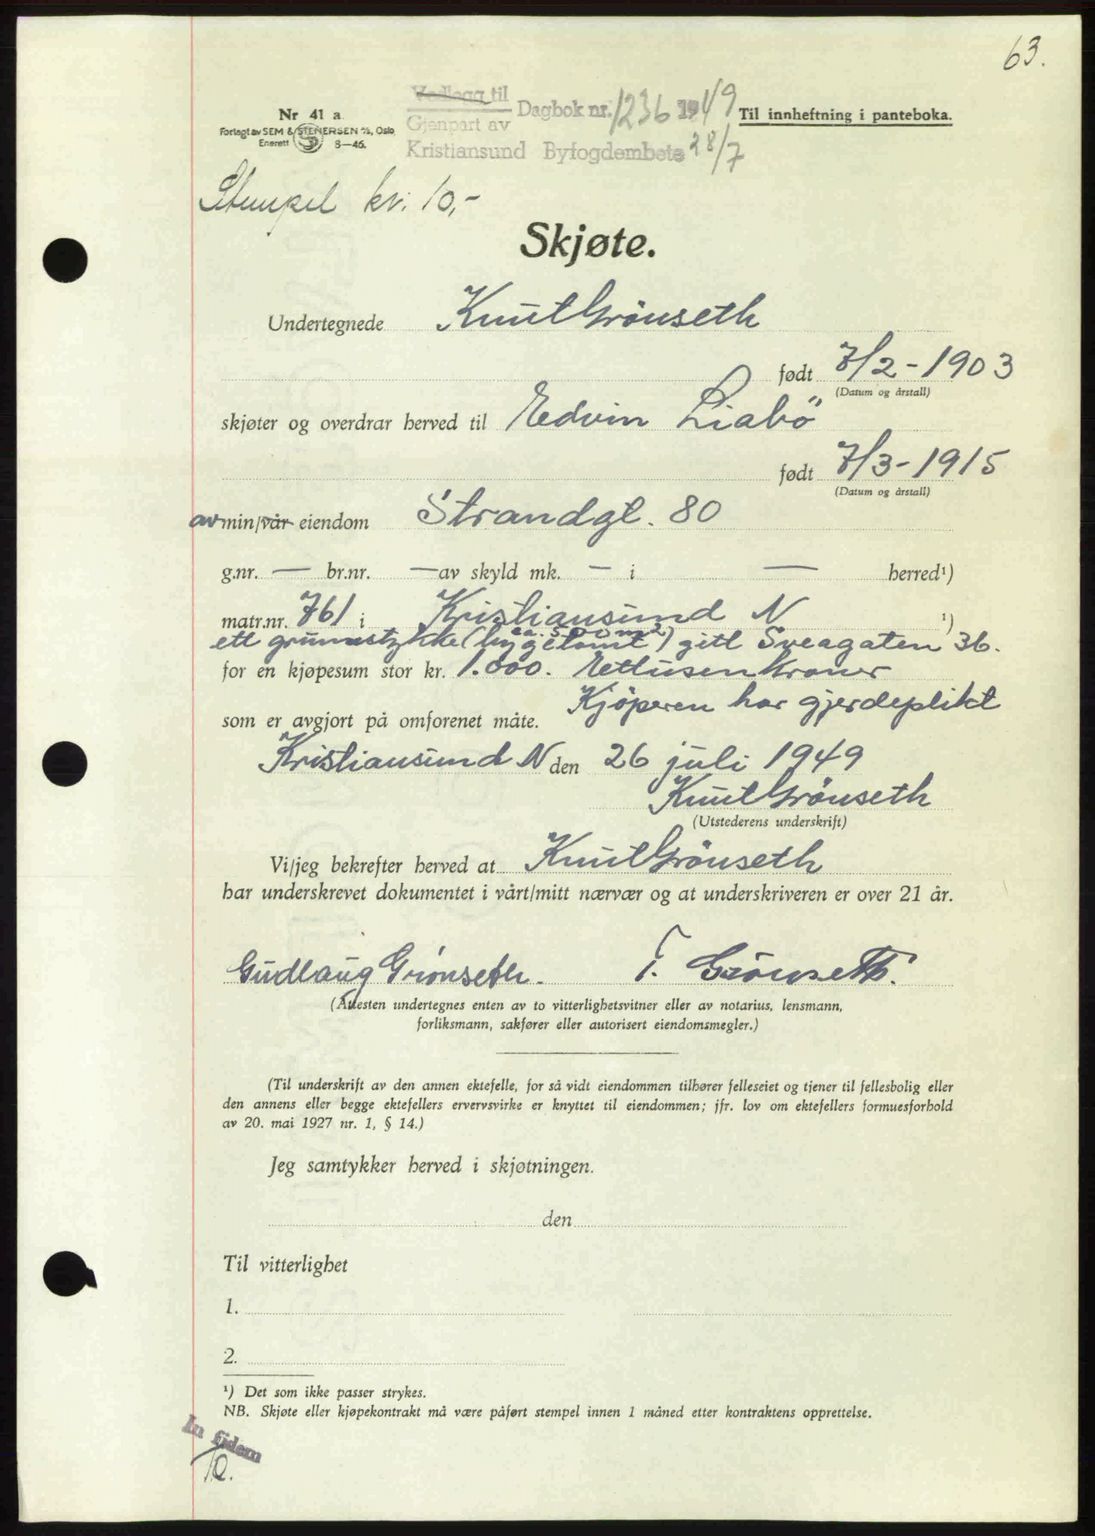 63.
Vedlegg til
Gjenpart av
Dagbok nr. 1236 1949
Kristiansund Byfogdembete 28/7
Nr 41 a
Forlagt av SEM & STENERSEN A/S, Oslo
Enerett 8—46.
Til innheftning i panteboka.
Stempel kr. 10,-
Skjøte.
Undertegnede Knut Grönseth
født 7/2-1903
(Datum og årstall)
skjøter og overdrar herved til Edvin Liabö
født 7/3-1915
(Datum og årstall)
av min/vår eiendom Strandgt. 80
g.nr. — br.nr. — av skyld mk. — i — herred¹)
matr.nr. 761 i Kristiansund N ¹)
ca. 500 m2
ett grunnstykke (byggetomt) gitt Sveagaten 36.
for en kjøpesum stor kr. 1.000. Ettusen kroner
som er avgjort på omforenet måte. Kjöperen har gjerdeplikt
Kristiansund N den 26 juli 1949
Knut Grönseth
(Utstederens underskrift)
Vi/jeg bekrefter herved at Knut Grönseth
har underskrevet dokumentet i vårt/mitt nærvær og at underskriveren er over 21 år.
Gudlaug Grönseth. T. Grönseth.
(Attesten undertegnes enten av to vitterlighetsvitner eller av notarius, lensmann,
forliksmann, sakfører eller autorisert eiendomsmegler.)
(Til underskrift av den annen ektefelle, for så vidt eiendommen tilhører felleseiet og tjener til fellesbolig eller
den annens eller begge ektefellers ervervsvirke er knyttet til eiendommen; jfr. lov om ektefellers formuesforhold
av 20. mai 1927 nr. 1, § 14.)
Jeg samtykker herved i skjøtningen.
den
Til vitterlighet
1.
2.
¹) Det som ikke passer strykes.
NB. Skjøte eller kjøpekontrakt må være påført stempel innen 1 måned etter kontraktens opprettelse.
In fidem